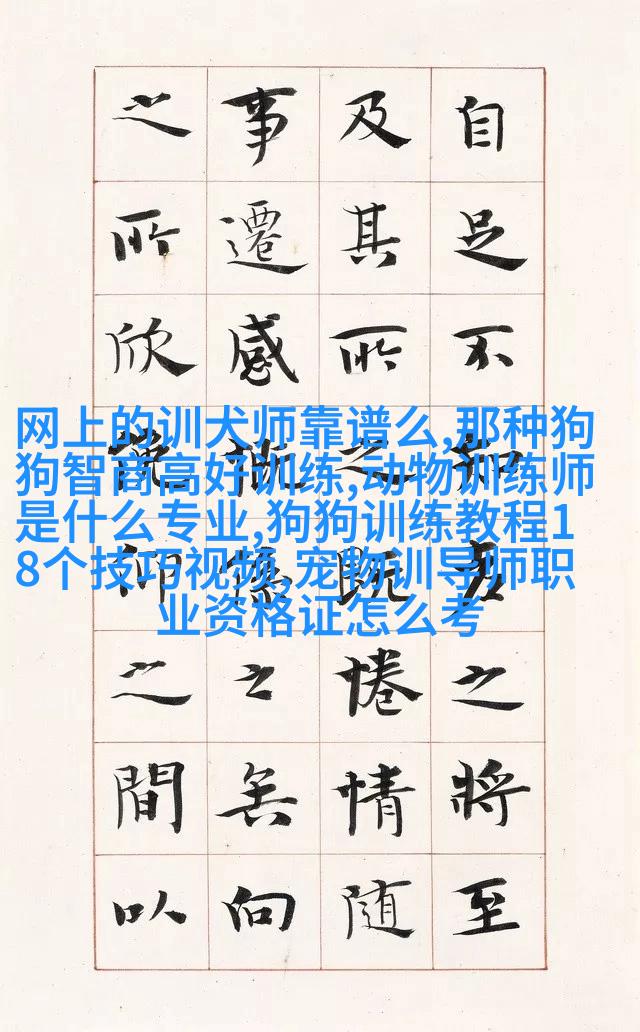 网上的训犬师靠谱么,那种狗
狗智商高好训练,动物训练师
是什么专业,狗狗训练教程1
8个技巧视频,宠物训导师职
业资格证怎么考
自足不知老之將至
及其所之既惓情隨
事遷感慨係之矣向
之所欣俛仰之間以